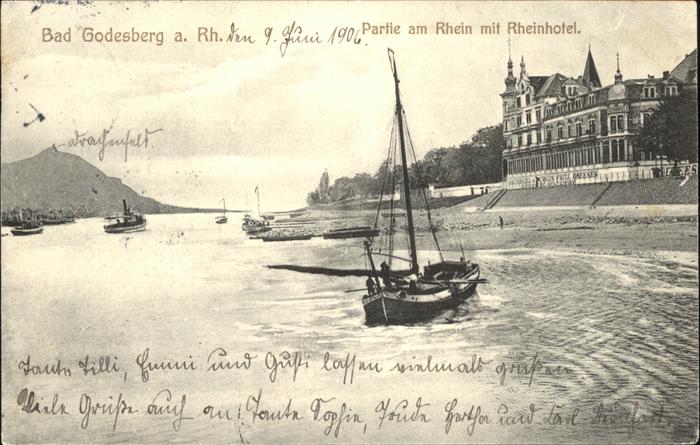 Bad Godesberg a. Rh. den 9. Juni 1906.
Partie am Rhein mit Rheinhotel.
Drachenfels.
FRITZ DREESEN
Tante Lilli, Emmi und Gusti lassen vielmals grüßen
Viele Grüße auch an: Tante Sophie, Trude Hertha und Karl-